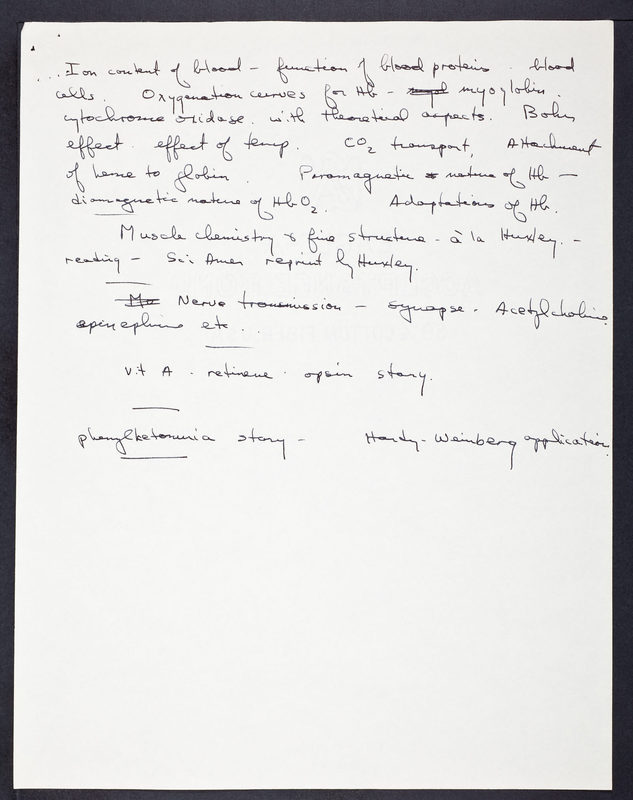 Ion content of blood - function of blood proteins. blood
cells. Oxygenation curves for Hb - myoglobin.
cytochrome oxidase. with theoretical aspects. Bohr
effect. effect of temp. CO2 transport, Attachment
of heme to globin. Paramagnetic nature of Hb -
diamagnetic nature of HbO2. Adaptations of Hb.
Muscle chemistry & fine structure - à la Huxley. -
reading - Sci. Amer reprint by Huxley.
Nerve transmission - synapse - Acetylcholine
epinephrine etc..
Vit A - retinene - opsin story.
phenylketonuria story - Hardy-Weinberg application.